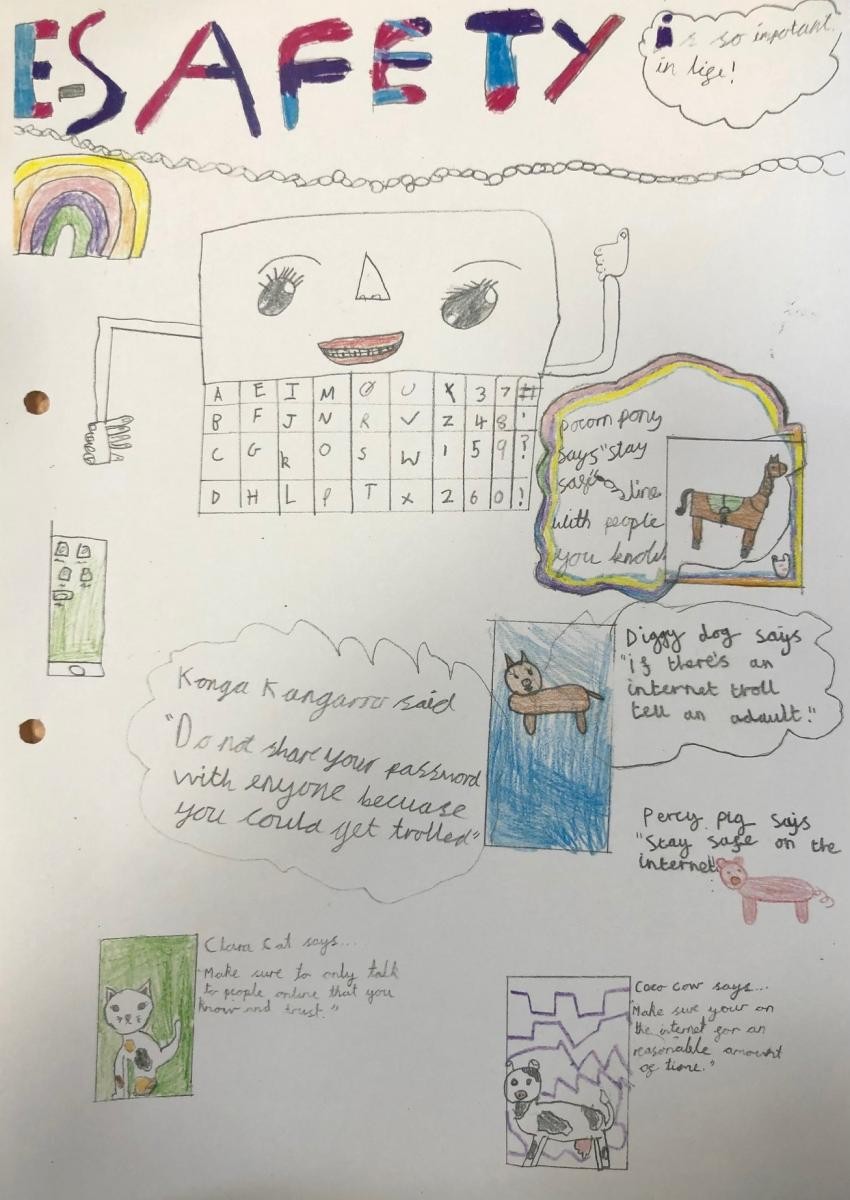 E-SAFETY
is so impotant
in life!
A E I M Q U X 3 7 #
B F J N R V Z 4 8 '
C G K O S W 1 5 9 ?
D H L P T X 2 6 0 !
pocorn pony
says "stay
safe
line
with people
you know"
Konga Kangaroo said
"Do not share your password
with enyone becuase
you could get trolled"
Diggy dog says
"if there's an
internet troll
tell an adault."
Percy pig says
"Stay safe on the
internet"
Clara Cat says...
"Make sure to only talk
to people online that you
know and trust."
Coco cow says...
"Make sure your on
the internet for an
reasonable amount
of time."